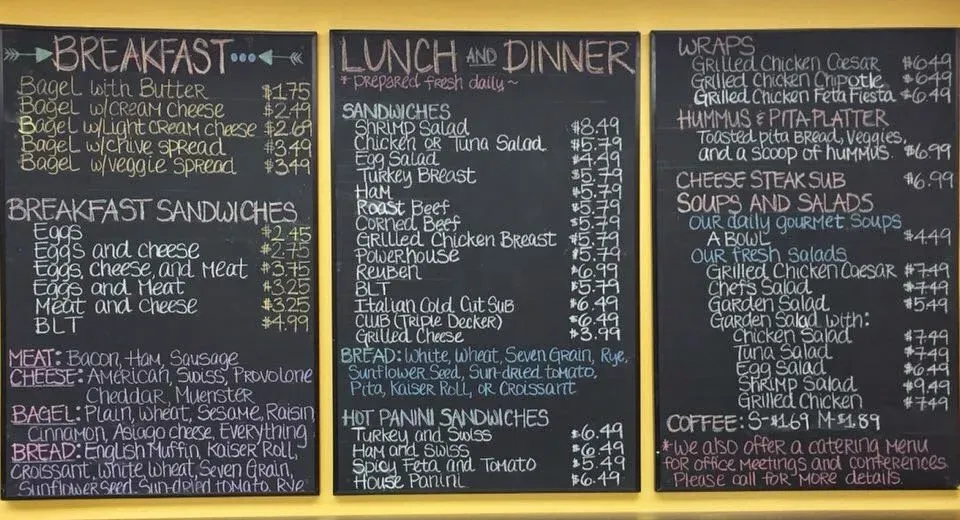 BREAKFAST
Bagel with Butter $1.75
Bagel w/cream cheese $2.49
Bagel w/Light cream cheese $2.69
Bagel w/chive spread $3.49
Bagel w/veggie spread $3.49
BREAKFAST SANDWICHES
Eggs $2.45
Eggs and cheese $2.75
Eggs, cheese, and Meat $3.75
Eggs and Meat $3.25
Meat and cheese $3.25
BLT $4.99
MEAT: Bacon, Ham, Sausage
CHEESE: American, Swiss, Provolone
Cheddar, Muenster
BAGEL: Plain, Wheat, Sesame, Raisin
Cinnamon, Asiago cheese, Everything
BREAD: English Muffin, Kaiser Roll,
Croissant, White, Wheat, Seven Grain,
Sunflower Seed, Sun-dried tomato, Rye
LUNCH AND DINNER
*prepared fresh daily~
SANDWICHES
Shrimp Salad $8.49
Chicken or Tuna Salad $5.79
Egg Salad $4.49
Turkey Breast $5.79
Ham $5.79
Roast Beef $5.79
Corned Beef $5.79
Grilled Chicken Breast $5.79
Powerhouse $5.79
Reuben $6.99
BLT $5.79
Italian Cold Cut Sub $6.49
CLUB (Triple Decker) $6.49
Grilled Cheese $3.99
BREAD: White, Wheat, Seven Grain, Rye,
Sunflower Seed, Sun-dried tomato,
Pita, Kaiser Roll, or Croissant
HOT PANINI SANDWICHES
Turkey and Swiss $6.49
Ham and Swiss $6.49
Spicy Feta and Tomato $5.49
House Panini $6.49
WRAPS
Grilled Chicken Caesar $6.49
Grilled Chicken Chipotle $6.49
Grilled Chicken Feta Fiesta $6.49
HUMMUS & PITA PLATTER
Toasted pita Bread, Veggies,
and a scoop of hummus. $6.99
CHEESE STEAK SUB $6.99
SOUPS AND SALADS
Our daily gourmet Soups
A BOWL $4.49
Our fresh Salads
Grilled Chicken Caesar $7.49
Chefs Salad $7.49
Garden Salad $5.49
Garden Salad with:
Chicken Salad $7.49
Tuna Salad $7.49
Egg Salad $6.49
Shrimp Salad $9.49
Grilled Chicken $7.49
COFFEE: S-$1.69 M-$1.89
*We also offer a catering menu
for office meetings and conferences.
Please call for more details.